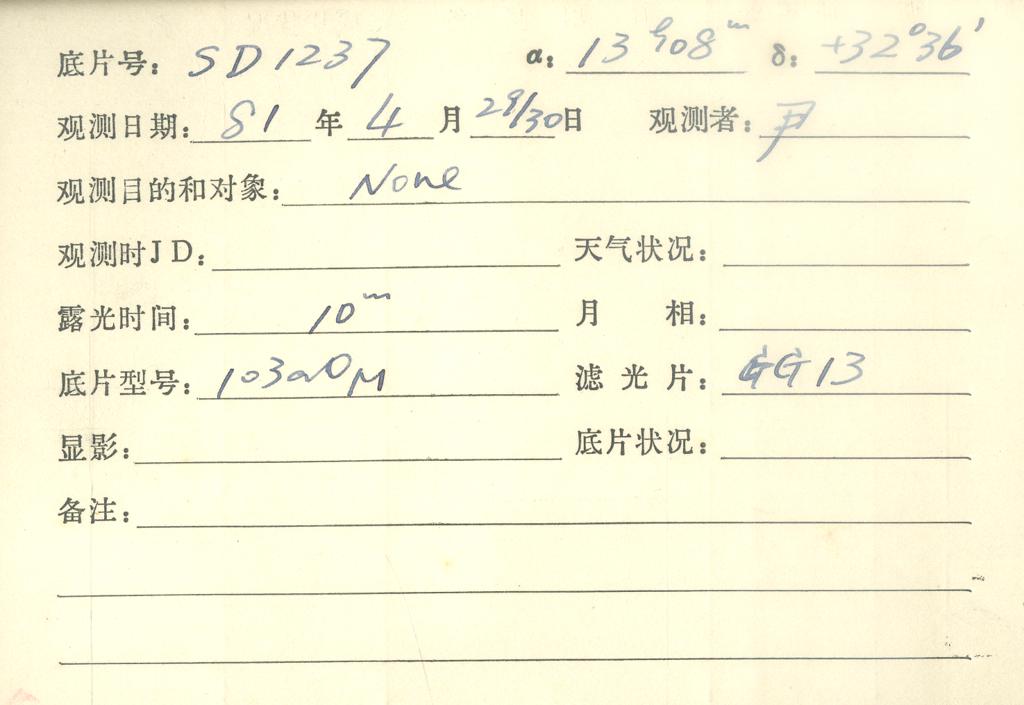 底片号: SD1237 α: 13ʰ08ᵐ δ: +32°36′
观测日期: 81 年 4 月 29/30 日 观测者: 尹
观测目的和对象: None
观测时JD: 天气状况:
露光时间: 10ᵐ 月 相:
底片型号: 103aO 滤 光 片: GG13
显影: 底片状况:
备注: